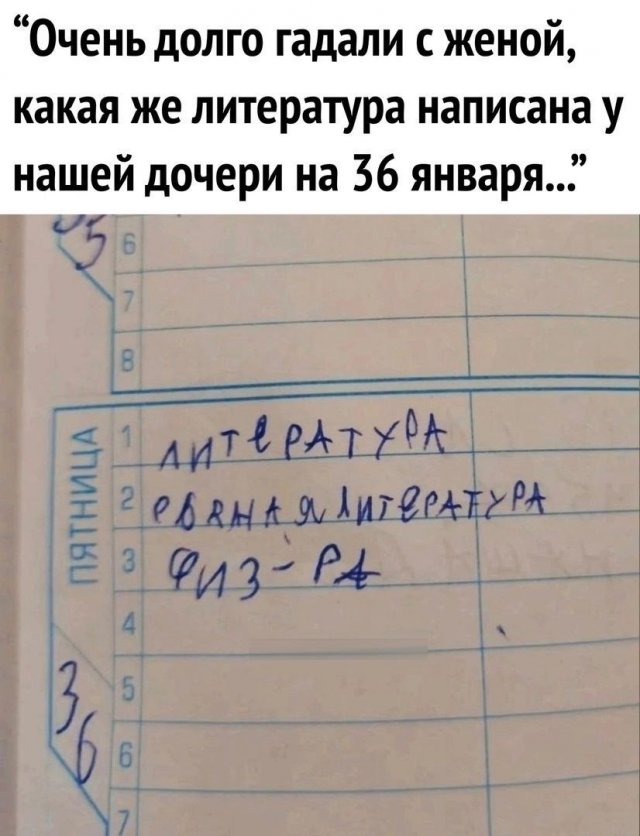 “Очень долго гадали с женой,
какая же литература написана у
нашей дочери на 36 января...”
35
6
7
8
ПЯТНИЦА
1 ЛИТЕРАТУРА
2 РОДНАЯ ЛИТЕРАТУРА
3 ФИЗ-РА
4
5
36
6
7